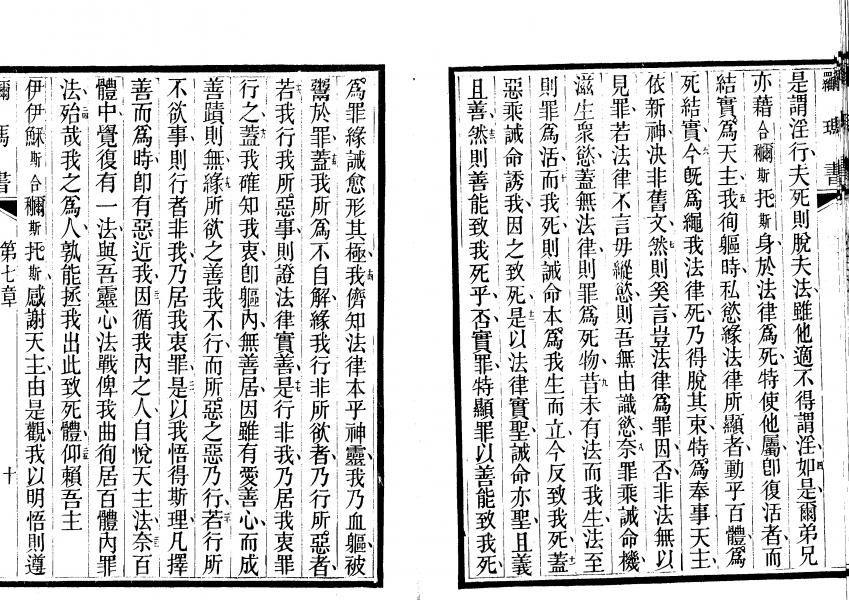 羅瑪書
是謂淫行夫死則脫夫法雖他適不得謂淫四如是爾弟兄
亦藉合穪斯托斯身於法律爲死特使他屬卽復活者而
結實爲天主五我徇軀時私慾緣法律所顯者動乎百體爲
死結實六今旣爲繩我法律死乃得脫其束特爲奉事天主
依新神決非舊文七然則奚言豈法律爲罪因否非法無以
見罪若法律不言毋縱慾則吾無由識慾八奈罪乘誡命機
滋生衆慾蓋無法律則罪爲死物九昔未有法而我生法至
則罪爲活十而我死則誡命本爲我生而立今反致我死十一蓋
惡乘誡命誘我因之致死十二是以法律實聖誡命亦聖且義
且善十三然則善能致我死乎否實罪特顯罪以善能致我死
爲罪緣誡愈形其極十四我儕知法律本乎神靈我乃血軀被
鬻於罪十五蓋我所爲不自解緣我行非所欲者乃行所惡者
若我行我所惡事則證法律實善十七是行非我乃居我衷罪
行之十八蓋我確知我衷卽軀內無善居因雖有愛善心而成
善蹟則無緣十九所欲之善我不行而所惡之惡乃行二十若行所
不欲事則行者非我乃居我衷罪是以我悟得斯理凡擇
善而爲時卽有惡近我因循我內之人自悅天主法二三奈百
體中覺復有一法與吾靈心法戰俾我曲徇居百體內罪
法二四殆哉我之爲人孰能拯我出此致死體二五仰賴吾主
伊伊穌斯合穪斯托斯感謝天主由是觀我以明悟則遵
穪瑪書 第七章 十